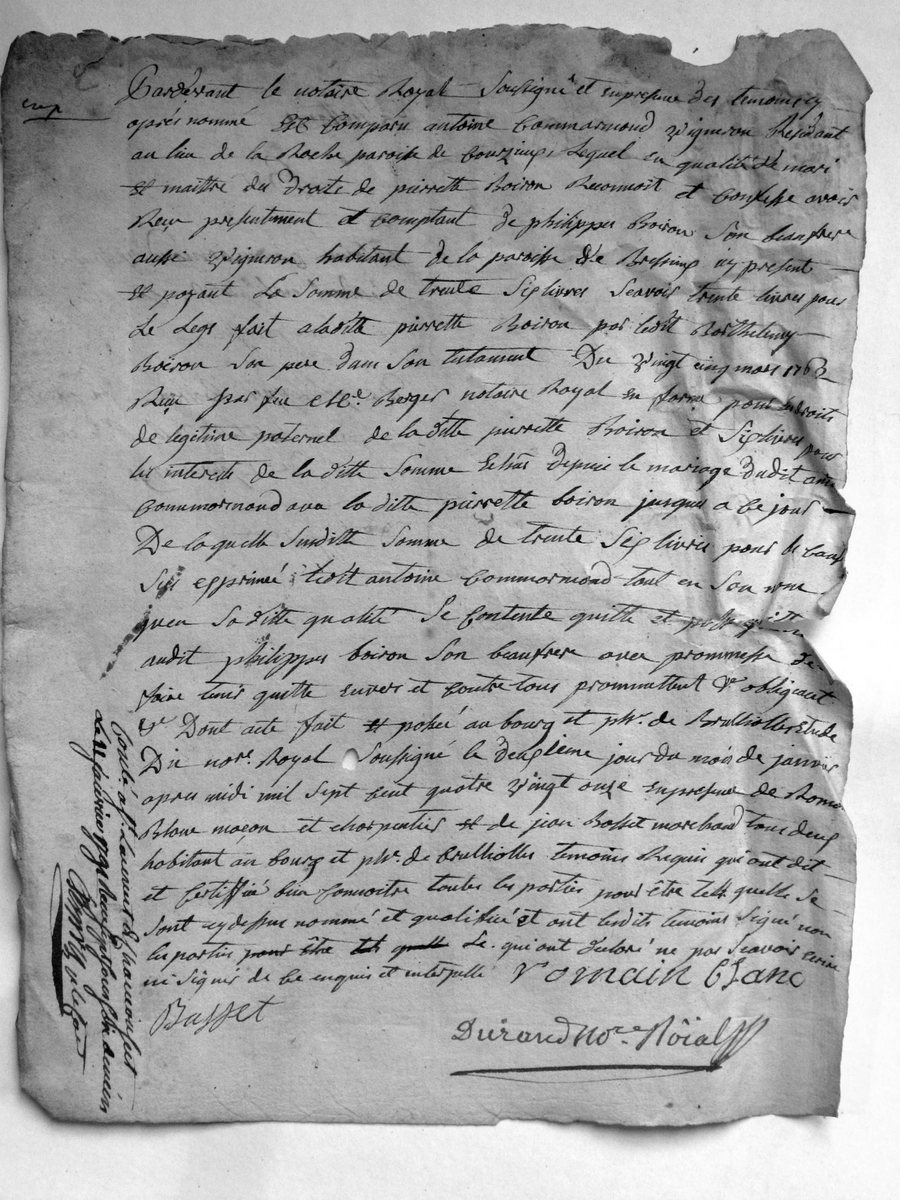 Pardevant le notaire Royal Soussigné et en presence des temoins cy
apres nommé est Comparu antoine Commarmond vigneron Residant
au lieu de la Roche paroisse de Courzieux Lequel en qualité de mari
et maitre des Droits de pierrette Boiron Reconnoit et Confesse avoir
Reçu presentment et comptant de philippes Boiron Son beaufrere
aussi vigneron habitant de la paroisse de cy present
et payant La Somme de trente Six livres Scavoir trente livres pour
Le Legs fait a ladite pierrette Boiron par ledit Barthelemy
Boiron Son pere dans Son testament Du vingt cinq mars 1763
Reçu par feu Me. Berger notaire Royal en forme pour Ses droits
de legitime paternel de la ditte pierrette Boiron et Six livres pour
les interets de la ditte Somme depuis le mariage dudit
Commarmond avec la ditte pierrette boiron jusques a ce jour
De laquelle Surditte Somme de trente Six livres pour les causes
Sus exprimé ledit antoine Commarmond tout en Son nom
quen Saditte qualité Se Contente quitte et
audit philippes boiron Son beaufrere avec prommesse de
faire tenir quitte envers et contre tous prommettant &c obligeant
&c Dont acte fait et passé au bourg et psse. de Brulliolles Etude
Du nore. Royal Soussigné le deuxieme jour du mois de janvier
apres midi mil Sept cent quatre vingt onze en presence de Romain
Blanc maçon et charpentier et de jean Basset marchand tous deux
habitant au bourg et psse. de brulliolles temoins Requis qui ont dit
et Certiffié bien Connoitre toutes les parties pour être telle quelle Se
Sont cy dessus nommé et qualifié et ont lesdits temoins Signé non
les parties pour être tel quelle Se. qui ont declaré ne pas Scavoir ecrire
ni Signer de Ce enquis et interpellé romain blanc
Basset
Durand Nore. Rôial
Controlé a St. Laurent de Chamousset